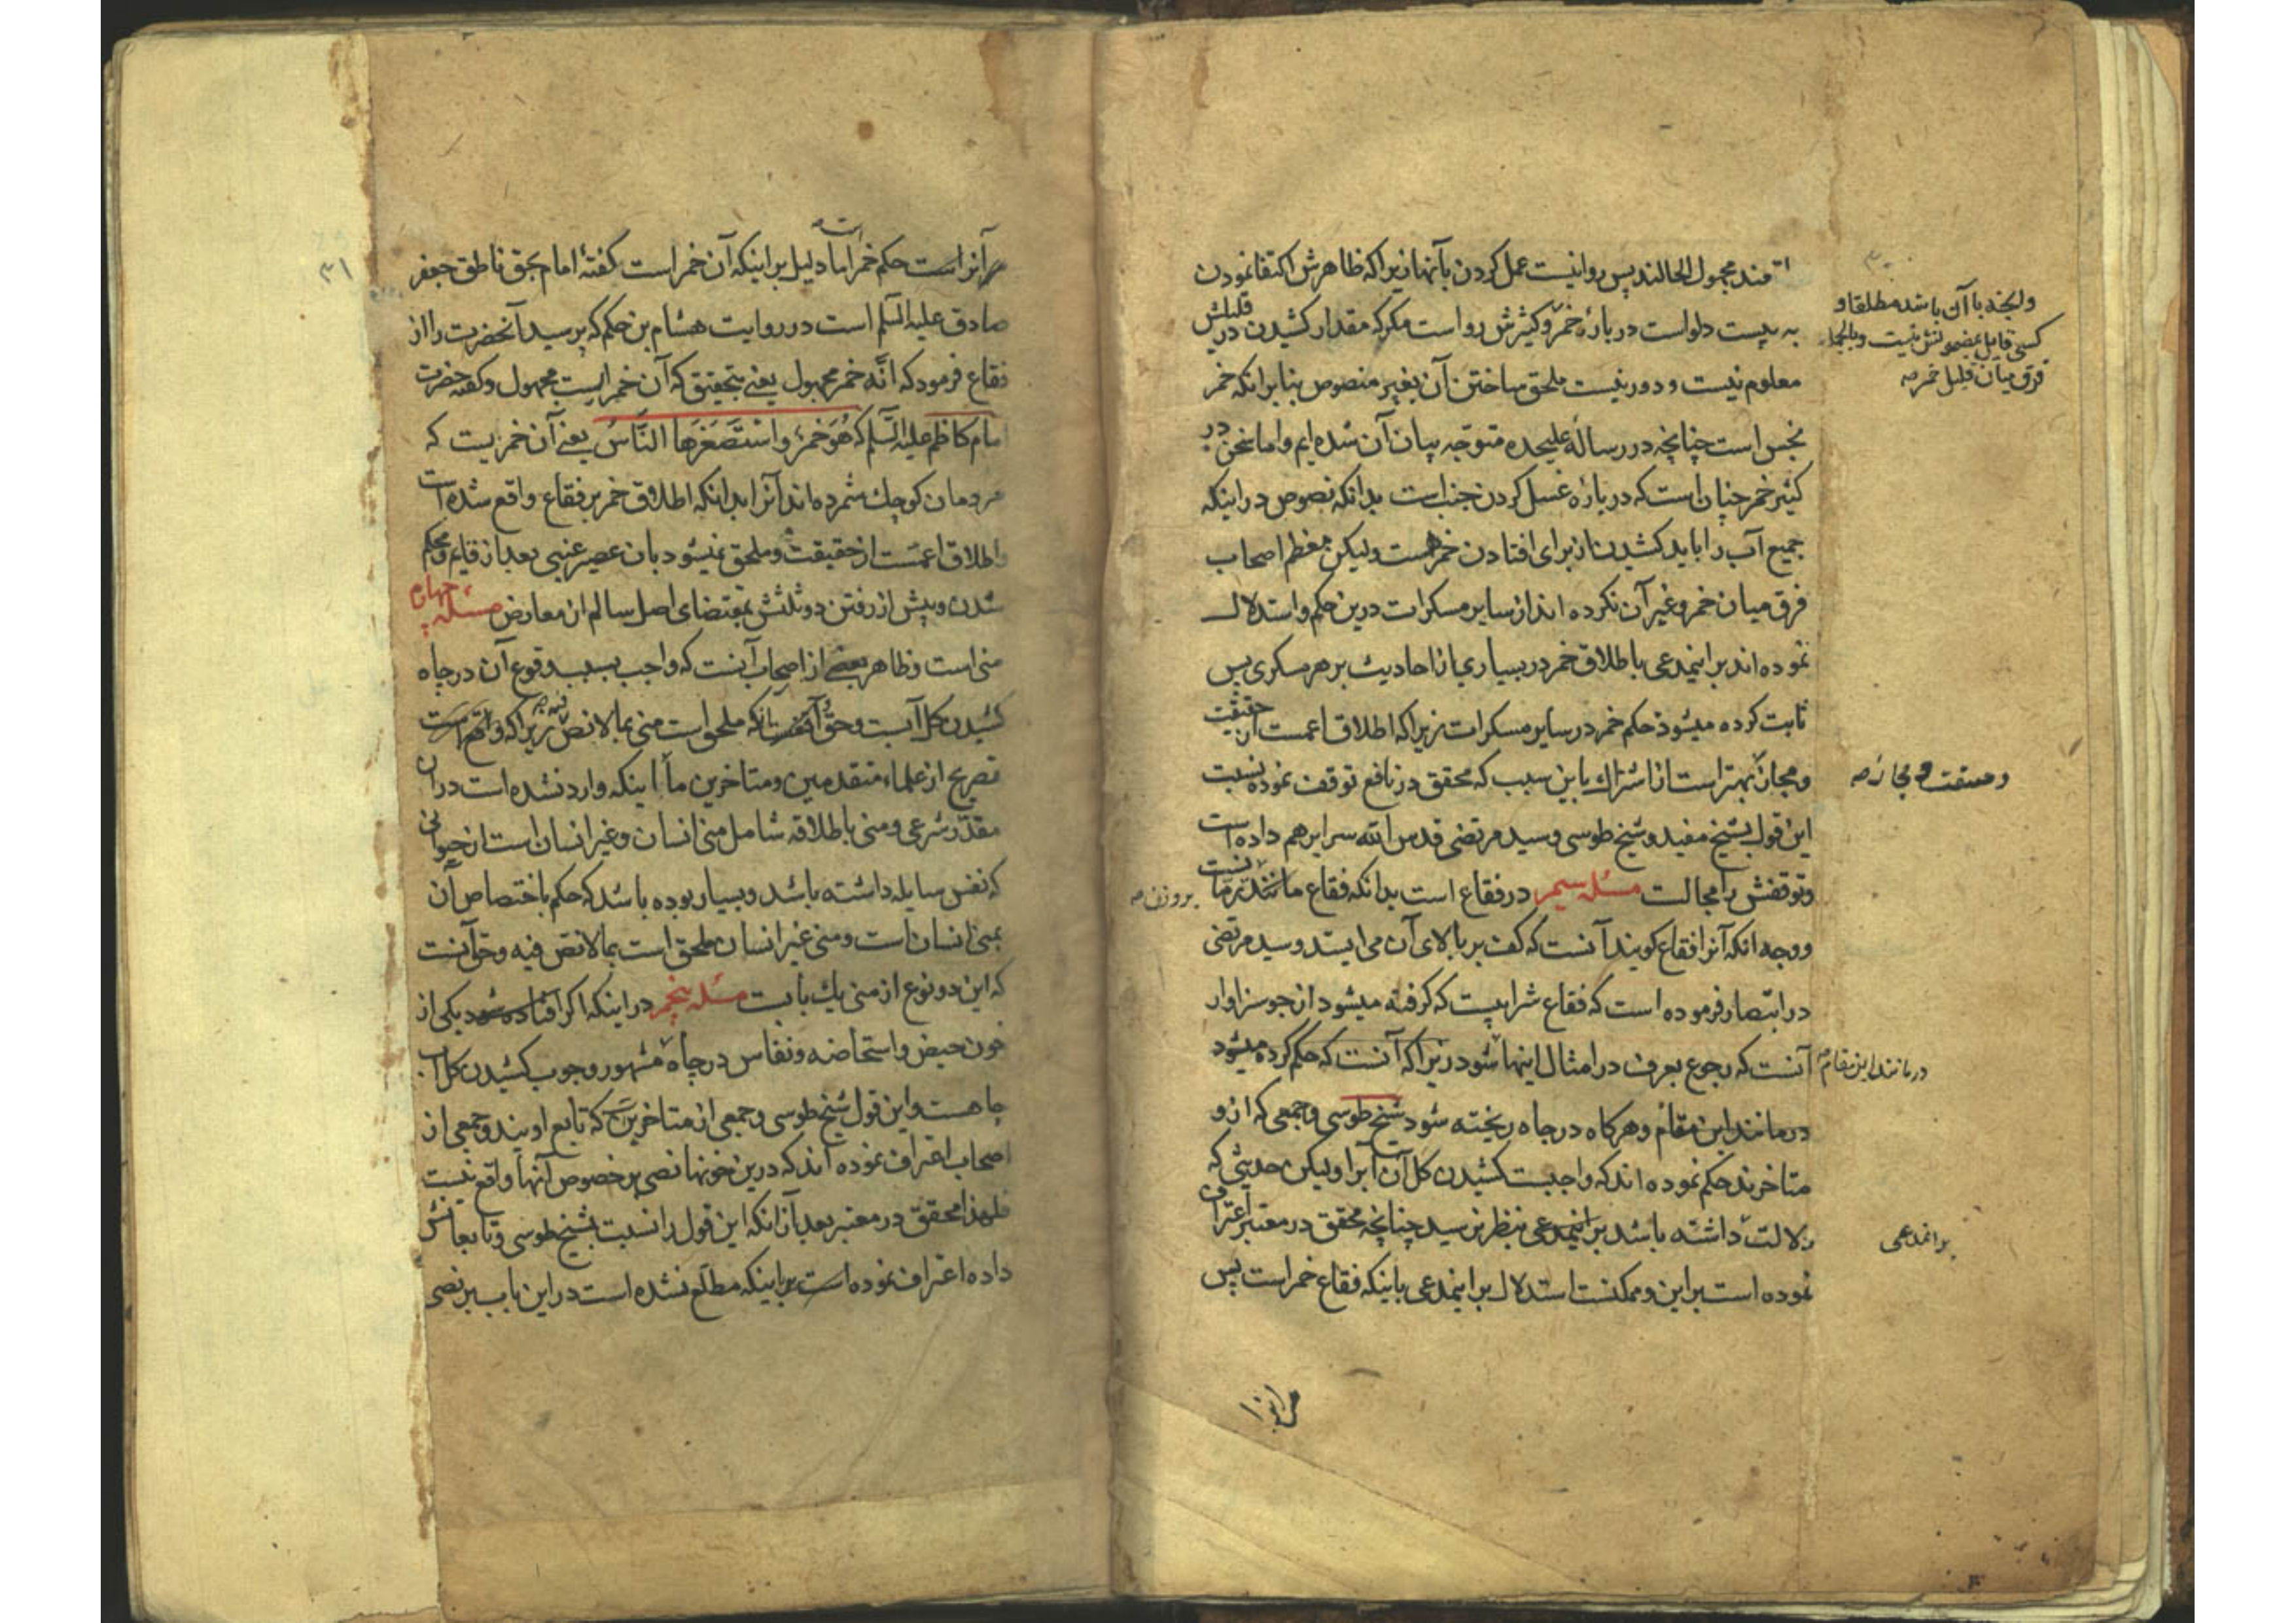 مند مجهول الحالند پس روا نیست عمل کردن بآنها زیرا که ظاهرش اکتفا نمودن
به بیست دلو است در بارهٔ خمر و کثیرش روا است مکر که مقدار کشیدن در قلیلش
معلوم نیست و دور نیست ملحق ساختن آن بغیر منصوص بنابر انکه خمر
نجس است چنانچه در رسالهٔ علیحده متوجّه بیان آن شده ایم و اما سخن در
کثیر خمر چنان است که در بارهٔ غسل کردن جنب است بدانکه نصوص در اینکه
جمیع آب را باید کشیدن از برای افتادن خمر هست ولیکن معظم اصحاب
فرق میان خمر و غیر آن نکرده اند از سایر مسکرات درین حکم و استدلال
نموده اند بر اینمدعی باطلاق خمر در بسیاری از احادیث بر هر مسکری پس
ثابت کرده میشود حکم خمر در سایر مسکرات زیرا که اطلاق اعمست از حقیقت
و مجاز بهتر است از اشتراک باین سبب که محقق در نافع توقف نموده نسبت
این قول بشیخ مفید و شیخ طوسی و سید مرتضی قدس الله سرایرهم داده است
و توقفش را مجالست مسئله سیم در فقاع است بدانکه فقاع مانند رمانست
و وجه انکه آنرا فقاع کویند آنست که کف بر بالای آن می ایستد و سید مرتضی
در انتصار فرموده است که فقاع شرابیست که کرفته میشود از جو سزاوار
آنست که رجوع بعرف در امثال اینها شود زیرا که آنست که حکم کرده میشود
در مانند این مقام و هر کاه در جاه ریخته شود شیخ طوسی و جمعی که ازو
متاخرند حکم نموده اند که واجبست کشیدن کل آن آبرا ولیکن حدیثی که
دلالت داشته باشد بر اینمدعی بنظر نرسید چنانچه محقق در معتبر اعتراف
نموده است بر این و ممکنست استدلال بر اینمدعی باینکه فقاع خمر است پس
و لیخه با آن باشد مطلقا و
کسی قایل بمضمونش نیست و بالجمله
فرق میان قلیل خمر صه
و حقیقت و مجاز صه
بر وزن صه
در مانند این مقام
بر اینمدعی
۳۱
آنراست حکم خمر اما دلیل بر اینکه آن خمر است کفتهٔ امام بحق ناطق جعفر
صادق علیه السلم است در روایت هشام بن حکم که پرسید آنحضرت را از
فقاع فرمود که انّه خمر مجهول یعنی بتحقیق که آن خمریست مجهول و کفته حضرت
امام کاظم علیه السلم که هُوَ خمرٌ و استَصغَرَها النّاسُ یعنی آن خمریست که
مردمان کوچک شمرده اند آنرا بدانکه اطلاق خمر بر فقاع واقع شده است
و اطلاق اعمست از حقیقت و ملحق نمیشود بان عصیر عنبی بعد از قایم و محکم
شدن و پیش از رفتن دو ثلثش بمقتضای اصل سالم از معارض مسئله چهارم
منی است و ظاهر بعضی از اصحاب آنست که واجب بسبب وقوع آن در چاه
کشیدن کل آبست و حق آنست که ملحق است منی بما لا نص فیه زیرا که واقع است
تصریح از علماء متقدمین و متاخرین ما با اینکه وارد نشده است در ان
مقدّر شرعی و منی باطلاقه شامل منی انسان و غیر انسان است از حیوانی
که نفس سایله داشته باشد و بسیار بوده باشد که حکم باختصاص آن
بمنی انسان است و منی غیر انسان ملحق است بما لا نص فیه و حق آنست
که این دو نوع از منی یک بابست مسئله پنجم در اینکه اکر افتاده شود یکی از
خون حیض و استحاضه و نفاس در چاه مشهور وجوب کشیدن کل آب
چاهست و این قول شیخ طوسی و جمعی از متاخرین که تابع اویند و جمعی از
اصحاب اعتراف نموده اند که درین خونها نصی بر خصوص آنها واقع نیست
فلهذا محقق در معتبر بعد از انکه این قول را نسبت بشیخ طوسی و تابعانش
داده اعتراف نموده است بر اینکه مطلع نشده است در این باب بر نصی